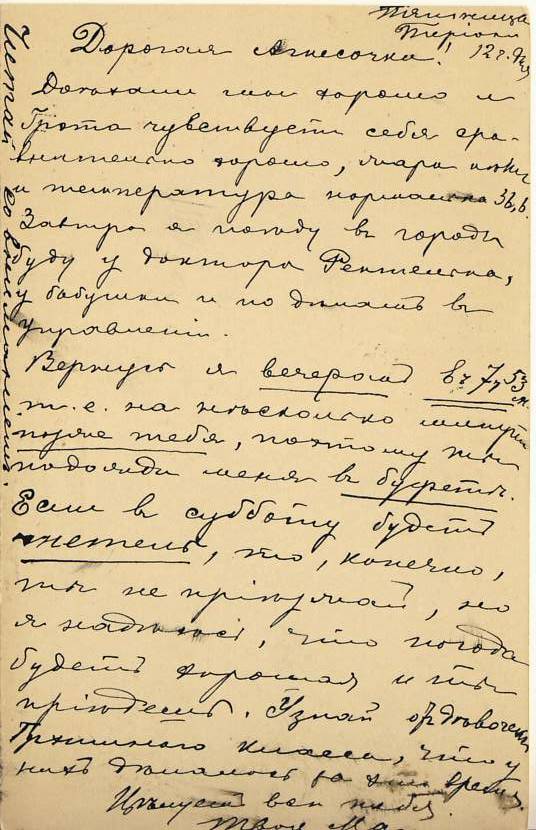 Пятница
Терiоки
12 ч. дня
Дорогая Агнесочка!
Доехали мы хорошо и
Грета чувствуетъ себя сра-
внительно хорошо,
и температура нормальна 36,6.
Завтра я поѣду въ городъ
буду у доктора
у бабушки и по дѣламъ въ
управленiи.
Вернусь я вечеромъ въ 7 ч 53 м.
т. е. на нѣсколько минутъ
позже тебя, поэтому ты
подожди меня въ буфетѣ.
Если въ субботу будетъ
метель, то, конечно,
ты не прiѣзжай, но
я надѣюсь, что погода
будетъ хорошая и ты
прiѣдешь. Узнай отъ дѣвочекъ
класса, что у
нихъ дѣлалось за это время.
Цѣлуемъ всѣ тебя.
Твоя Ма
Читай со вниманiемъ.